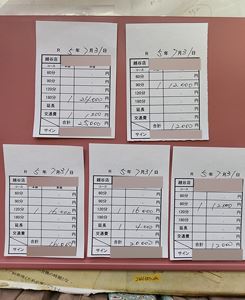 月 5年 7月31/
越谷店
コース
60分 円
90分 円
120分 円
180分 1 24,000 円
延長 円
交通費 円
合計 25,000 円
サイン
月 5年 7月31/
越谷店
コース
60分 円
90分 1 12,000 円
120分 円
180分 円
延長 円
交通費 円
合計 12000 円
サイン
月 5年 7月31/
越谷店
コース
60分 円
90分 円
120分 1 16,000 円
180分 円
延長 円
交通費 円
合計 16000 円
サイン
月 5年 7月31/
越谷店
コース
60分 円
90分 円
120分 1 16,000 円
180分 円
延長 1 4,000 円
交通費 円
合計 20000 円
サイン
月 5年 7月31/
越谷店
コース
60分 円
90分 1 12000 円
120分 円
180分 円
延長 円
交通費 円
合計 12000 円
サイン